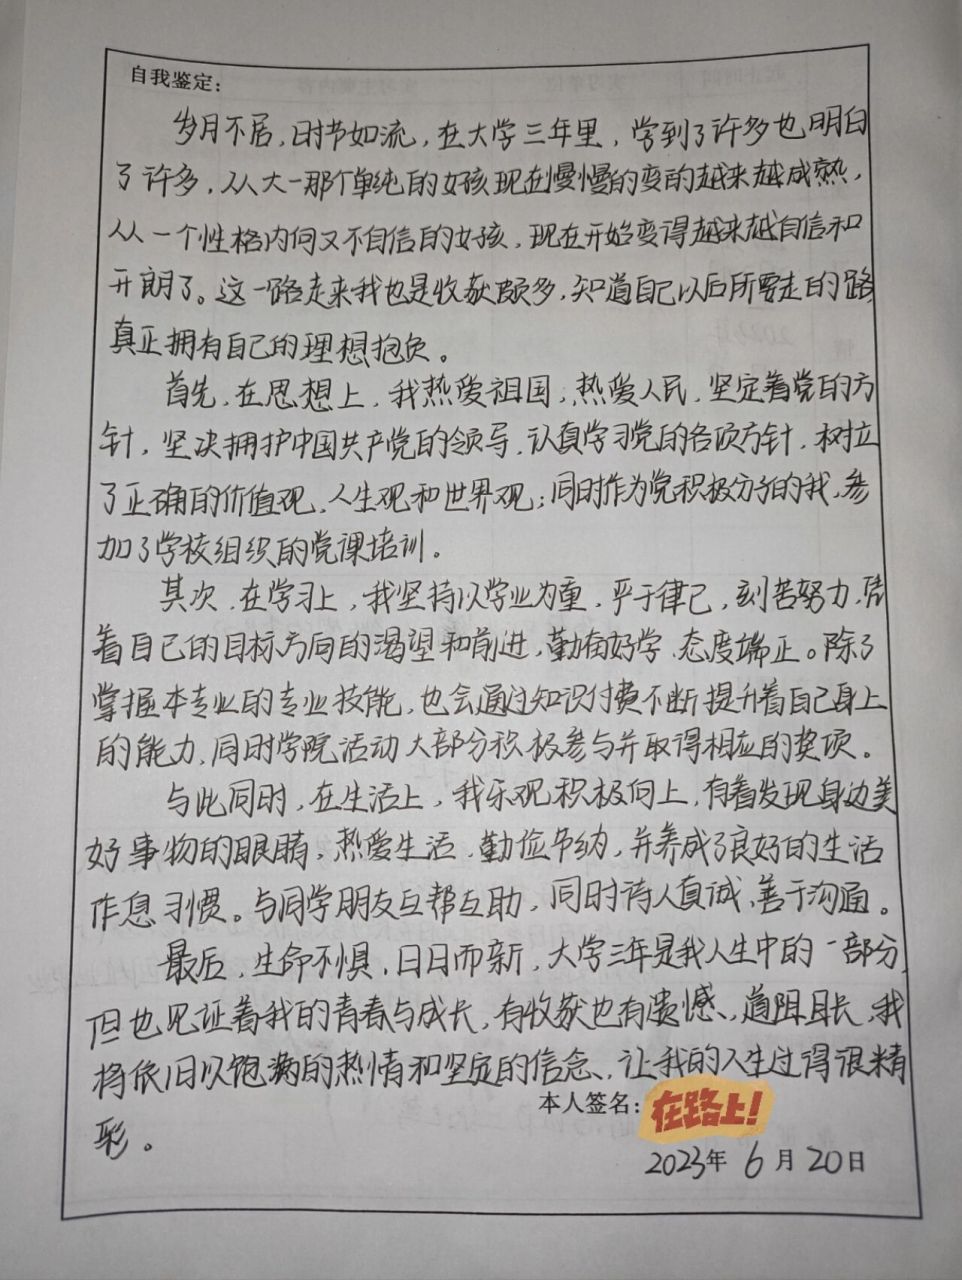 自我鉴定：
岁月不居，时节如流，在大学三年里，学到了许多也明白
了许多，从大一那个单纯的女孩现在慢慢的变的越来越成熟，
从一个性格内向又不自信的女孩，现在开始变得越来越自信和
开朗了。这一路走来我也是收获颇多，知道自己以后所要走的路
真正拥有自己的理想抱负。
首先，在思想上，我热爱祖国，热爱人民，坚定着党的方
针，坚决拥护中国共产党的领导，认真学习党的各项方针，树立
了正确的价值观、人生观和世界观；同时作为党积极分子的我，参
加了学校组织的党课培训。
其次，在学习上，我坚持以学业为重，严于律己，刻苦努力，凭
着自己的目标方向的渴望和前进，勤奋好学、态度端正。除了
掌握本专业的专业技能，也会通过知识付费不断提升着自己身上
的能力，同时学院活动大部分积极参与并取得相应的奖项。
与此同时，在生活上，我乐观积极向上，有着发现身边美
好事物的眼睛，热爱生活，勤俭节约，并养成了良好的生活
作息习惯。与同学朋友互帮互助，同时待人真诚、善于沟通。
最后，生命不惧，日日而新，大学三年是我人生中的一部分，
但也见证着我的青春与成长，有收获也有遗憾、道阻且长，我
将依旧以饱满的热情和坚定的信念、让我的人生过得很精
彩。
本人签名：在路上！
2023年 6 月 20 日